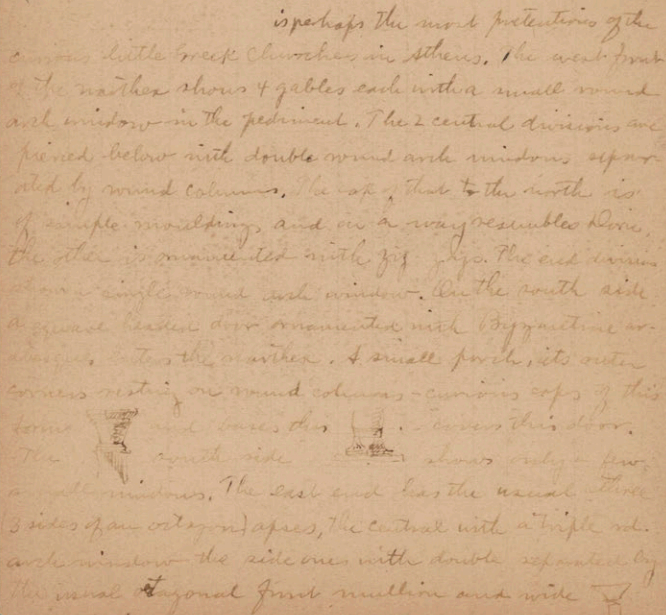 is perhaps the most pretentious of the
curious little Greek Churches in Athens. The west front
of the narthex shows 4 gables each with a small round
arch window in the pediment. The 2 central divisions are
pierced below with double round arch windows separ
ated by round columns. The cap of that to the north is
of simple mouldings and in a way resembles Doric,
the other is ornamented with zig zags. The end divisions
a single round arch window. On the south side
a square headed door ornamented with Byzantine ar-
abesque, enters the narthex. A small porch, its outer
corners resting on round columns - curious caps of this
form and bases thus - covers this door.
The south side shows only a few
small windows. The east end has the usual three
(3 sides of an octagon) apses, the central with a triple rd.
arch window the side ones with double separated by
the usual octagonal front mullion and wide